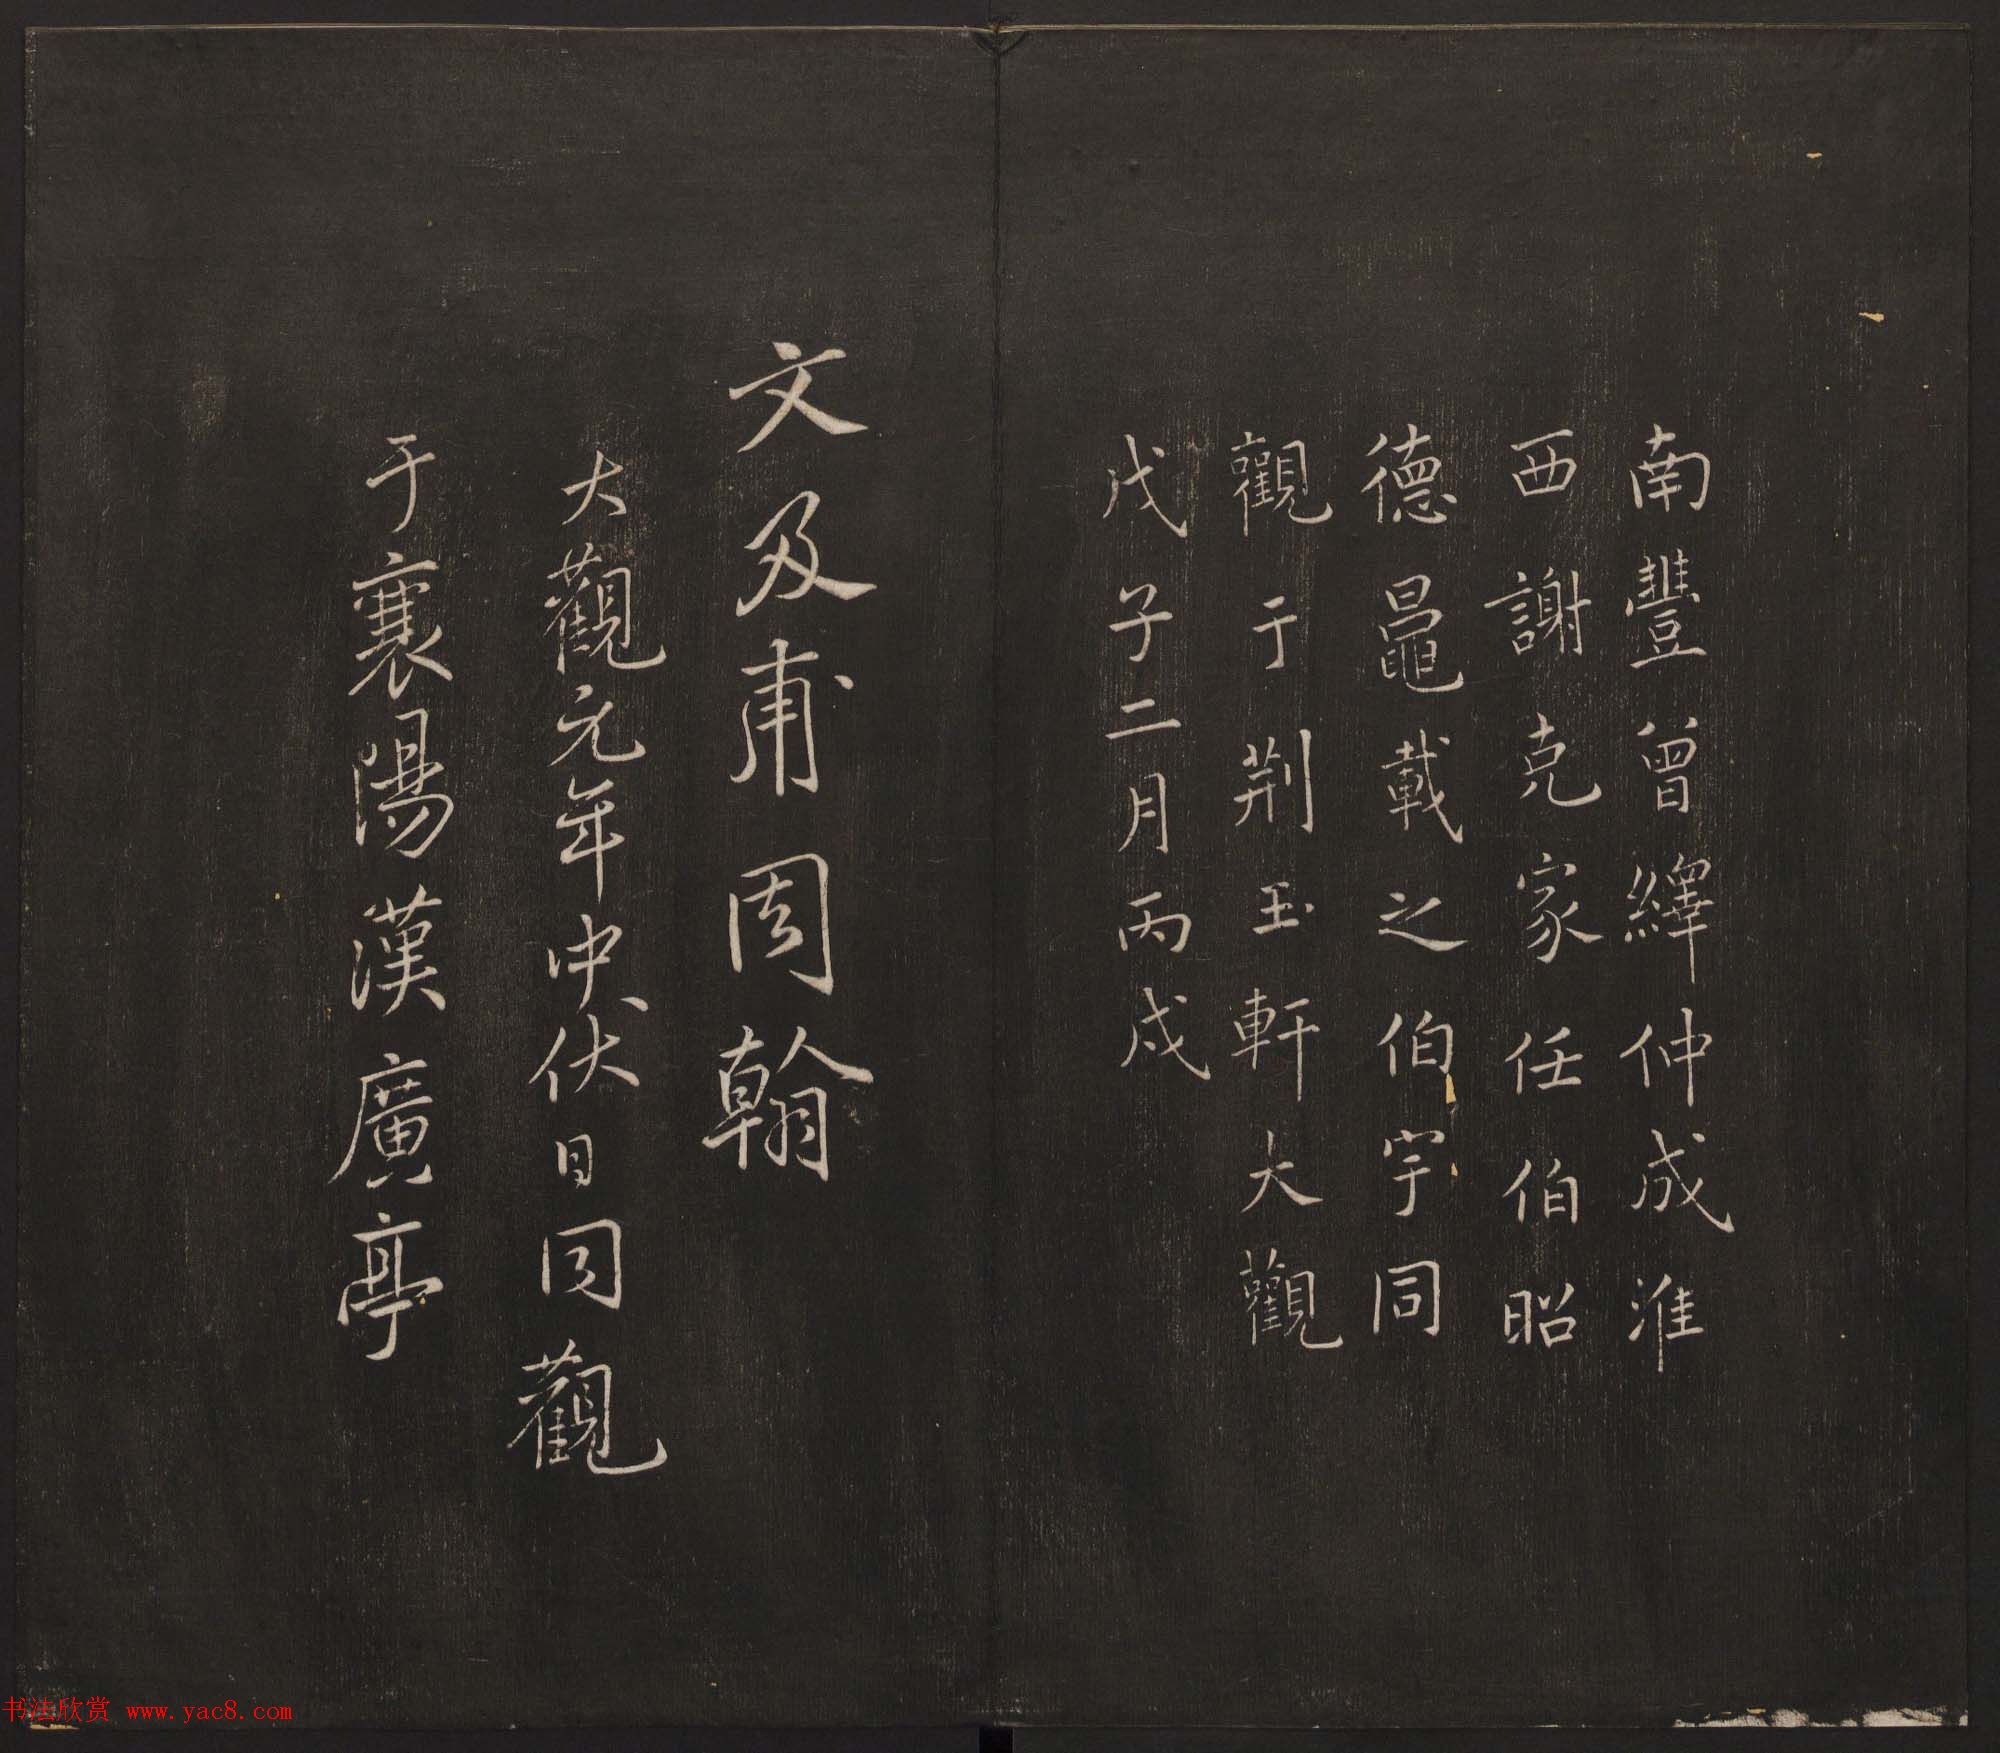 南豐曾繹仲成淮
西謝克家任伯昭
德鼂載之伯宇同
觀于荆玉軒大觀
戊子二月丙戌
文及甫周翰
大觀元年中伏日同觀
于襄陽漢廣亭
书法欣赏 www.yac8.com